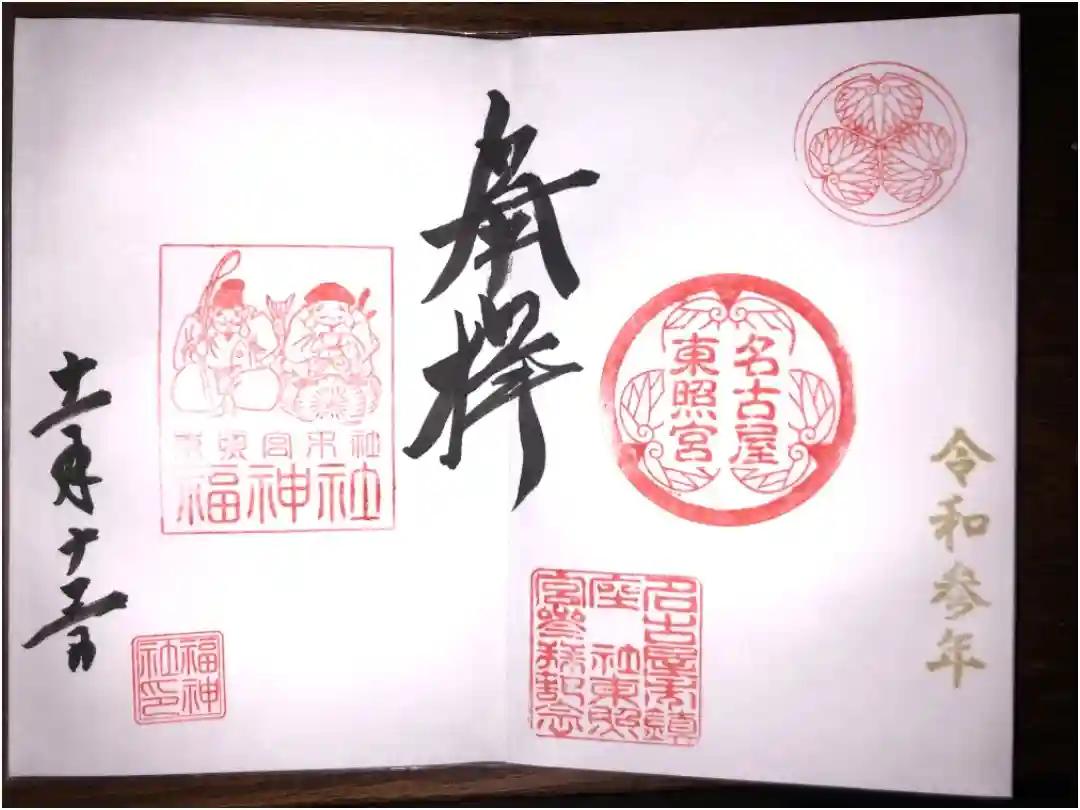 令和参年
名古屋
東照宮
名古屋市鎮
座 社東照
宮參拝記念
奉拝
東照宮末社
福神社
十一月十
福神
社印